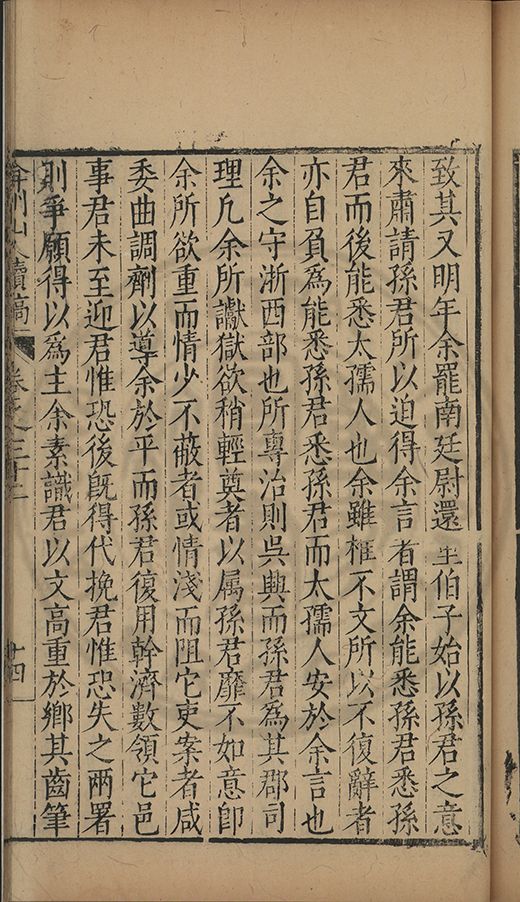 致其又明年余罷南廷尉還里伯子始以孫君之意
來肅請孫君所以迫得余言者謂余能悉孫君悉孫
君而後能悉太孺人也余雖椎不文所以不復辭者
亦自負爲能悉孫君悉孫君而太孺人安於余言也
余之守浙西部也所專治則吳興而孫君爲其郡司
理凡余所讞獄欲稍輕奠者以属孫君靡不如意卽
余所欲重而情少不蔽者或情淺而阻它吏案者咸
委曲調劑以導余於平而孫君復用幹濟數領它邑
事君未至迎君惟恐後旣得代挽君惟恐失之兩署
則爭願得以爲主余素識君以文高重於鄉其齒筆
弇州山人續稿 卷之三十二 十四